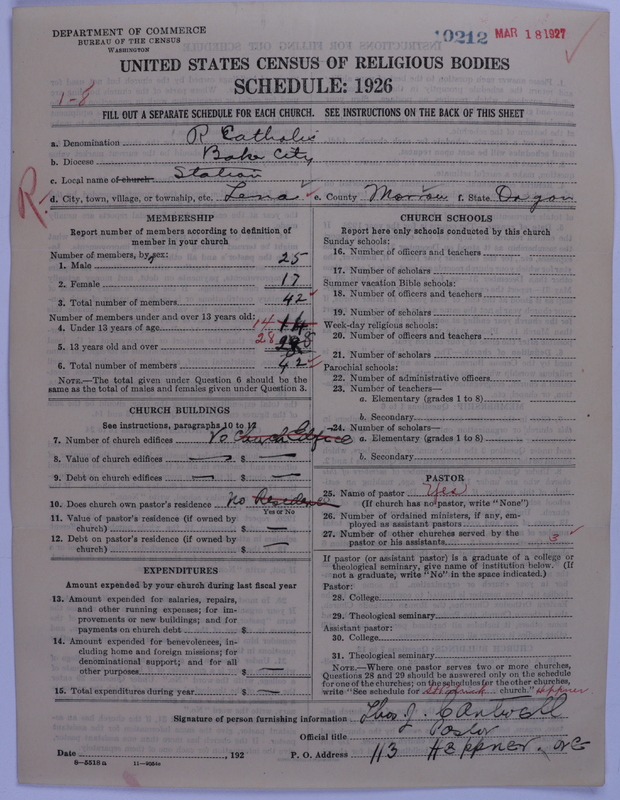 DEPARTMENT OF COMMERCE
BUREAU OF THE CENSUS
WASHINGTON
10212 MAR 18 1927
UNITED STATES CENSUS OF RELIGIOUS BODIES
SCHEDULE: 1926
1-8
FILL OUT A SEPARATE SCHEDULE FOR EACH CHURCH. SEE INSTRUCTIONS ON THE BACK OF THIS SHEET
a. Denomination R Catholic
b. Diocese Baker City
c. Local name of church Station
R.
d. City, town, village, or township, etc. Lena e. County Morrow f. State Oregon
MEMBERSHIP
Report number of members according to definition of
member in your church
Number of members, by sex:
1. Male 25
2. Female 17
3. Total number of members 42
Number of members under and over 13 years old:
4. Under 13 years of age 14 14
5. 13 years old and over 28 28
6. Total number of members 42
NOTE.—The total given under Question 6 should be
same as the total of males and females given under Question 3.
CHURCH BUILDINGS
See instructions, paragraphs 10 to 12
7. Number of church edifices No Church Edifice
8. Value of church edifices — $ —
9. Debt on church edifices — $ —
10. Does church own pastor's residence No Residence
Yes or No
11. Value of pastor's residence (if owned by
church) $ —
12. Debt on pastor's residence (if owned by
church) $ —
EXPENDITURES
Amount expended by your church during last fiscal year
13. Amount expended for salaries, repairs,
and other running expenses; for im-
provements or new buildings; and for
payments on church debt $
14. Amount expended for benevolences, in-
cluding home and foreign missions; for
denominational support; and for all
other purposes $ —
15. Total expenditures during year $ —
CHURCH SCHOOLS
Report here only schools conducted by this church
Sunday schools:
16. Number of officers and teachers
17. Number of scholars
Summer vacation Bible schools:
18. Number of officers and teachers
19. Number of scholars
Week-day religious schools:
20. Number of officers and teachers
21. Number of scholars
Parochial schools:
22. Number of administrative officers
23. Number of teachers—
a. Elementary (grades 1 to 8)
b. Secondary
24. Number of scholars—
a. Elementary (grades 1 to 8)
b. Secondary
PASTOR
25. Name of pastor Yes
(If church has no pastor, write "None")
26. Number of ordained ministers, if any, em-
ployed as assistant pastors
27. Number of other churches served by the
pastor or his assistants 3
If pastor (or assistant pastor) is a graduate of a college or
theological seminary, give name of institution below. (If
not a graduate, write "No" in the space indicated.)
Pastor:
28. College
29. Theological seminary
Assistant pastor:
30. College
31. Theological seminary
NOTE.—Where one pastor serves two or more churches,
Questions 28 and 29 should be answered only on the schedule
for one of the churches; on the schedules for the other churches,
write "See schedule for St Patrick church." Heppner
Signature of person furnishing information Thos J. Cantwell
Official title Pastor
Date , 192 P. O. Address 113 HEPPNER. ORE
8—5518 a 11—9684a